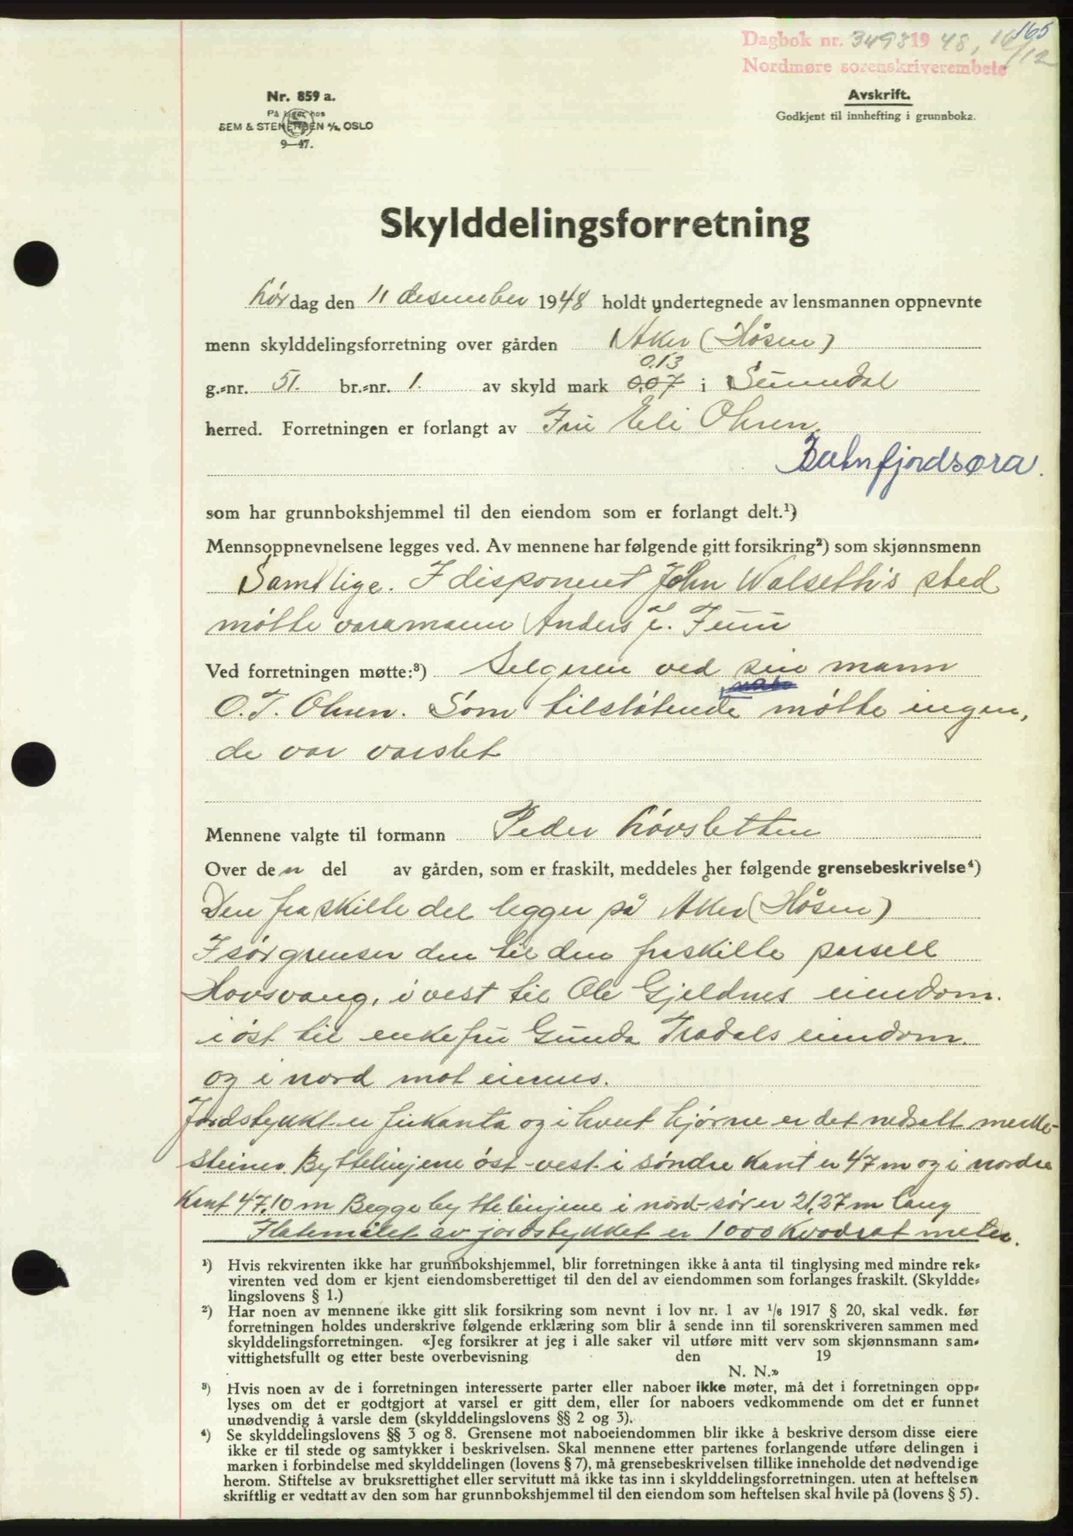 165
Dagbok nr. 3493 1948, 16/12
Nordmøre sorenskriverembete
Nr. 859 a.
På lager hos
SEM & STENERSEN A/S, OSLO
9—47.
Avskrift.
Godkjent til innhefting i grunnboka.
Skylddelingsforretning
Lørdag den 11 desember 1948 holdt undertegnede av lensmannen oppnevnte
menn skylddelingsforretning over gården Aker (Høsen)
0.13
g.-nr. 51. br.-nr. 1. av skyld mark 0,07 i Sunndal
herred. Forretningen er forlangt av Fru Eli Ohren
fjordsøra.
som har grunnbokshjemmel til den eiendom som er forlangt delt.¹)
Mennsoppnevnelsene legges ved. Av mennene har følgende gitt forsikring²) som skjønnsmenn
Samtlige. I disponent John Walseth's sted
møtte varamann Anders J.
Ved forretningen møtte:³) Selgeren ved sin mann
O.T. Ohren. Som tilstøtende møtte ingen,
de var varslet
Mennene valgte til formann Peder Løvsletten
Over den del av gården, som er fraskilt, meddeles her følgende grensebeskrivelse⁴)
Den fraskilte del legger på Aker (Høsen)
I sør grenser den til den fraskilte parsell
Hovsvang, i vest til Ole Gjeldnes eiendom.
i øst til enkefru Gunda Tradals eiendom.
og i nord mot eiernes.
Jordstykket er firkanta og i hvert hjørne er det nedsatt merke-
steiner. Byttelinjene øst-vest i søndre kant er 47 m og i nordre
kant 47,10 m Begge byttelinjene i nord-sør er 21,27 m lang
Flatemålet av jordstykket er 1000 kvadrat meter.
¹) Hvis rekvirenten ikke har grunnbokshjemmel, blir forretningen ikke å anta til tinglysing med mindre rek-
virenten ved dom er kjent eiendomsberettiget til den del av eiendommen som forlanges fraskilt. (Skyldde-
lingslovens § 1.)
²) Har noen av mennene ikke gitt slik forsikring som nevnt i lov nr. 1 av 1/6 1917 § 20, skal vedk. før
forretningen holdes underskrive følgende erklæring som blir å sende inn til sorenskriveren sammen med
skylddelingsforretningen. «Jeg forsikrer at jeg i alle saker vil utføre mitt verv som skjønnsmann sam-
vittighetsfullt og etter beste overbevisning den 19
N. N.»
³) Hvis noen av de i forretningen interesserte parter eller naboer ikke møter, må det i forretningen opp-
lyses om det er godtgjort at varsel er gitt dem, eller for naboers vedkommende om det er funnet
unødvendig å varsle dem (skylddelingslovens §§ 2 og 3).
⁴) Se skylddelingslovens §§ 3 og 8. Grensene mot naboeiendommen blir ikke å beskrive dersom disse eiere
ikke er til stede og samtykker i beskrivelsen. Skal mennene etter partenes forlangende utføre delingen i
marken i forbindelse med skylddelingen (lovens § 7), må grensebeskrivelsen tillike inneholde det nødvendige
herom. Stiftelse av bruksrettighet eller servitutt må ikke tas inn i skylddelingsforretningen. uten at heftelsen
skriftlig er vedtatt av den som har grunnbokshjemmel til den eiendom som heftelsen skal hvile på (lovens § 5).